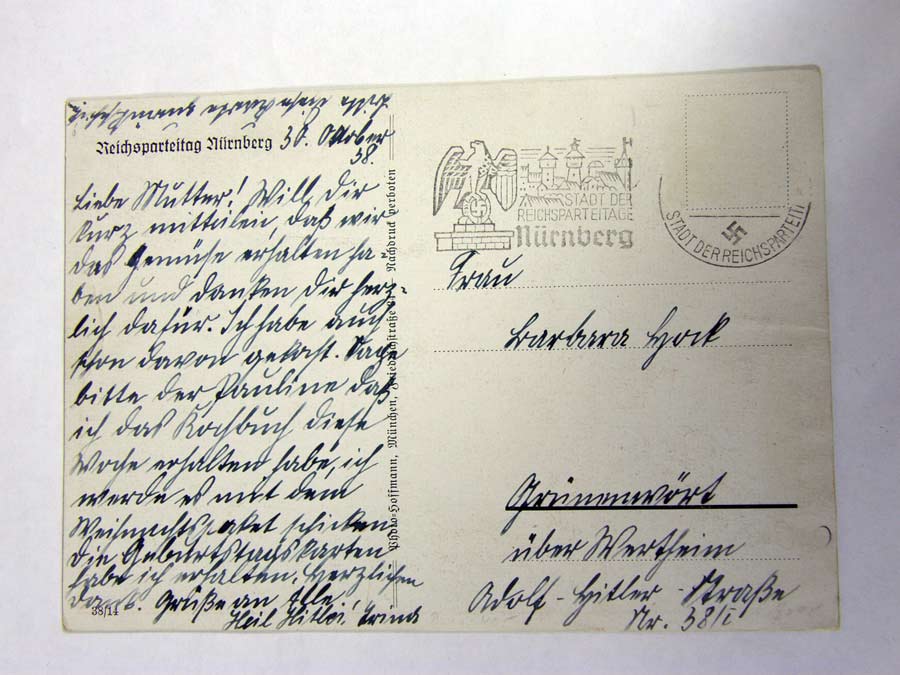 Bitte diese Karte
Reichsparteitag Nürnberg 30. Oktober
38.
Liebe Mutter! Will Dir
kurz mitteilen, daß wir
das Gemüse erhalten ha
ben und danken Dir herz-
lich dafür. Ich habe auch
schon davon gekocht. Sage
bitte der Pauline daß
ich das Kochbuch diese
Woche erhalten habe, ich
werde es mit dem
Weihnachtspaket schicken
die Geburtstagskarten
habe ich erhalten. Herzlichen
Dank. Grüße an Alle
Heil Hitler,
38/14
Photo-Hoffmann, München, Friedrichstraße Nachdruck verboten
STADT DER
REICHSPARTEITAGE
Nürnberg
STADT DER REICHSPARTEIT
Frau
Barbara Hock
Grünenwört
über Wertheim
Adolf-Hitler-Straße
Nr. 38/I